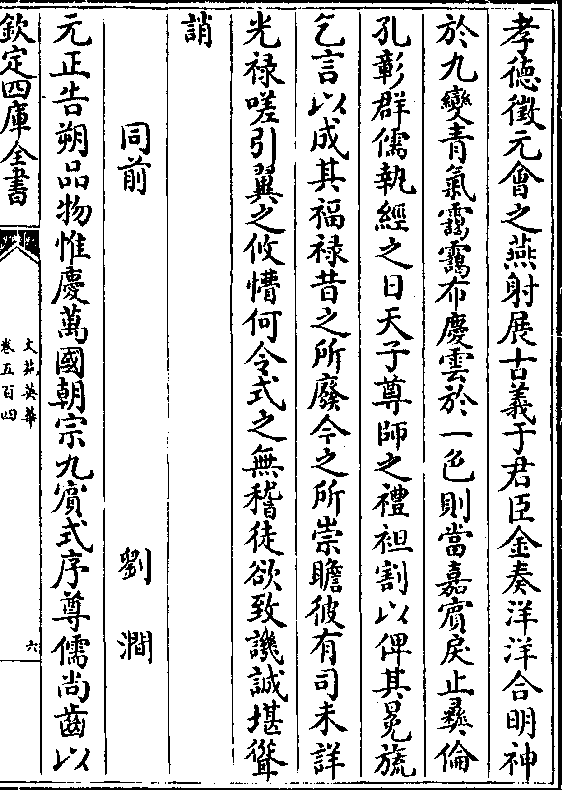 孝德徵元會之燕射展古義于君臣金奏洋洋合明神
於九變青氣靄靄布慶雲於一色則當嘉賓戾止彛倫
孔彰群儒執經之日天子尊師之禮袒割以俾其冕旒
乞言以成其福禄昔之所廢今之所崇瞻彼有司未詳
光禄嗟引翼之攸懵何令式之無稽徒欲致譏誠堪聳
誚
同前 劉澗
元正告朔品物惟慶萬國朝宗九賓式序尊儒尚齒以
欽定四庫全書
文苑英華
卷五百四
六